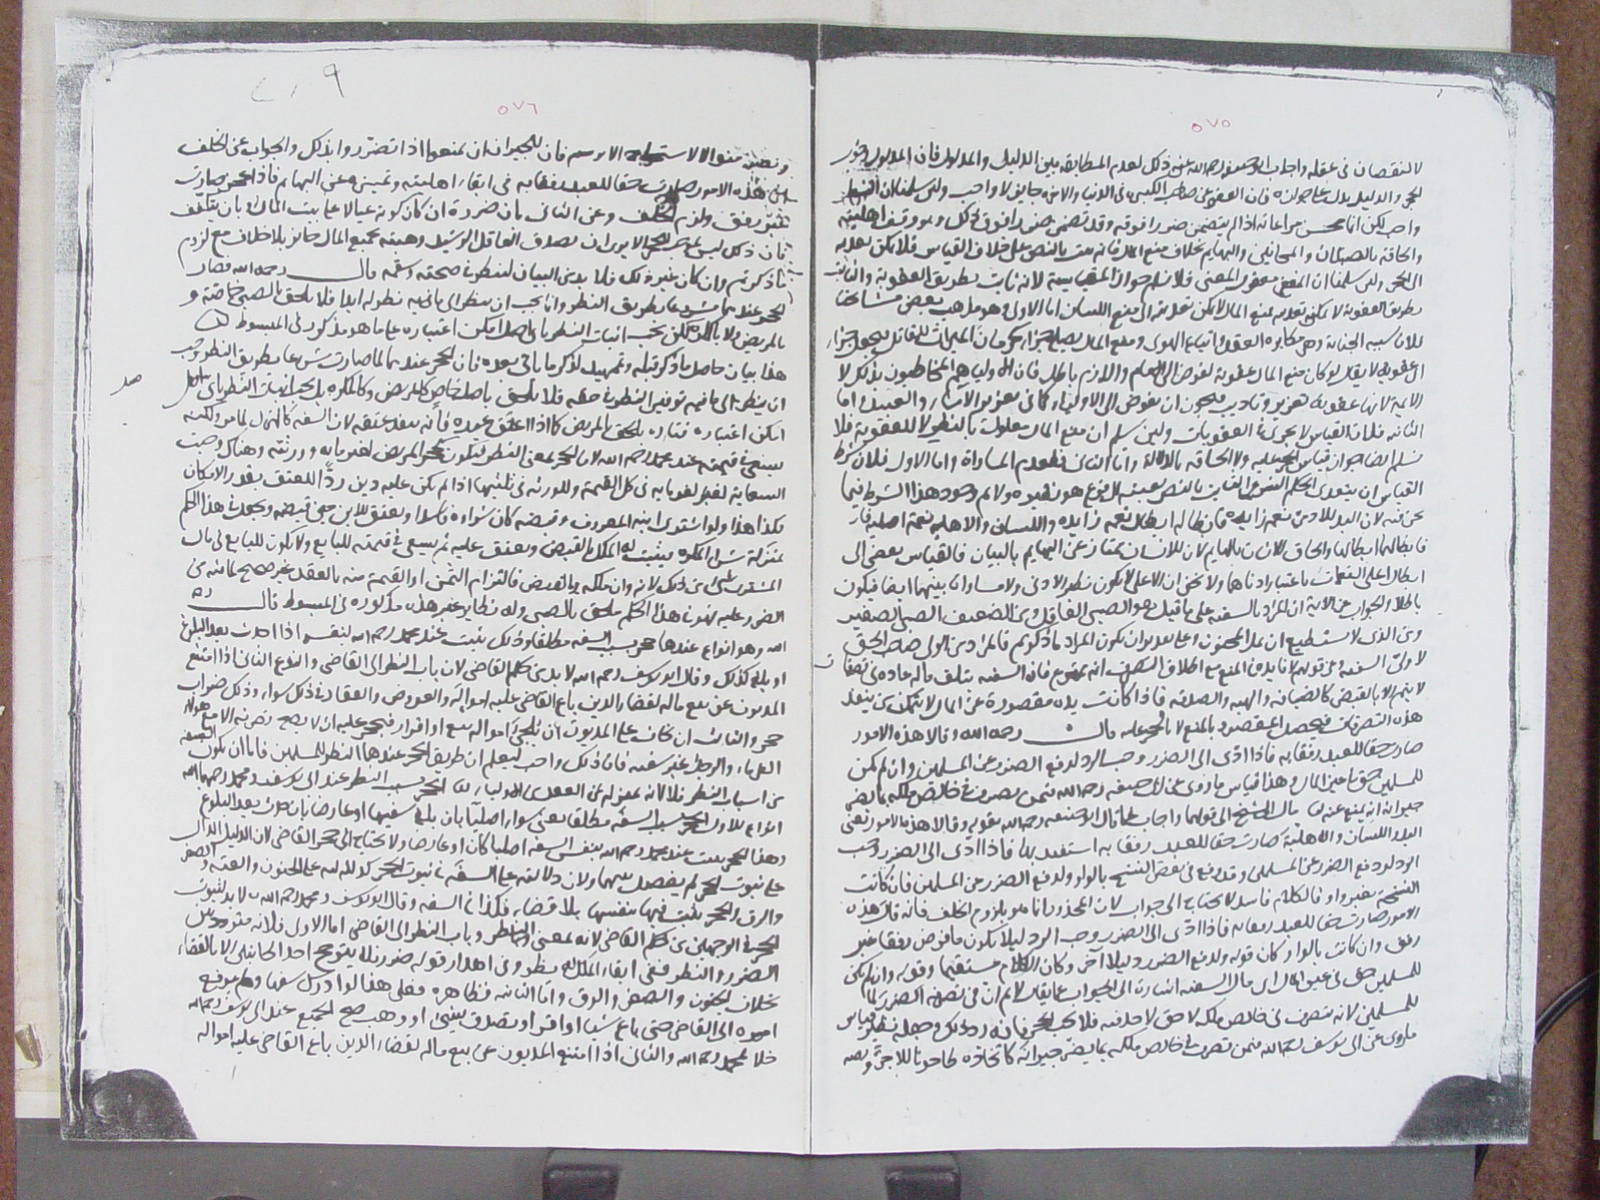 ٥٧٥
لا لنقصان في عقله واجاب ابو حنيفة رحمه الله عن ذلك لعدم المطابقة بين الدليل والمدلول فان المدلول وجوب
الحجر والدليل يدل على جوازه فان العفو عن صاحب الكبيرة في الدنيا والاخرة جايز لا واجب ولئن سلمنا ان النظر
واجب لكن انما يحسن مراعاته اذا لم يتضمن ضررا فوقه وقد تضمن ضررا فوق ذلك وهو وقف اهليته
والحاقه بالصبيان والمجانين والبهايم بخلاف منع المال فانه ثبت بالنص على خلاف القياس فلا يمكن تعديته
الى الحجر ولئن سلمنا ان النص معقول المعنى فلا نسلم جواز المقايسة لانه ثابت بطريق العقوبة والثابت
بطريق العقوبة لا يمكن تعديته لمنع المال لا يمكن تعديته الى منع اللسان اما الاول فهو مذهب بعض مشايخنا
للان سببه الجناية وهي مكابرة العقل واتباع الهوى ومنع المال يصلح جزاء كحرمان الميراث للقاتل فيجعل جزاء
لا يقال لو كان منع المال عقوبة لفوض الى الامام واللازم باطل فان الاولياء هم المخاطبون بذلك لا
الايمة لانها عقوبة تعزير وتاديب فيجوز ان يفوض الى الاولياء كما في تعزير الاماء والعبيد واما
الثانية فلان القياس لا يجري في العقوبات ولئن سلم ان منع المال معلول بالنظر لا للعقوبة فلا
نسلم ايضا جواز قياس الحجر عليه ولا الحاقه بالدلالة واما الثاني فلعدم المساواة واما الاول فلان شرط
القياس ان يتعدى الحكم الشرعي الثابت بالنص بعينه الى فرع هو نظيره ولا نم وجود هذا الشرط فيما
نحن فيه لان اليد للادمي نعمة زايدة فابطاله ابطال نعمة زايدة واللسان والاهلية نعمة اصلية
فابطالها ابطالها والحاق الانسان بالبهايم لان الانسان يمتاز عن البهايم بالبيان فالقياس يفضي الى
ابطال اعلى النعمات باعتبار ادناهما ولا نحن ان الاعلى لا يكون نظير الادنى ولا مساواة بينهما ايضا فيكون
باطلا والجواب عن الاية ان المراد بالسفيه على ما قيل هو الصبي العاقل ومن الضعيف الصبي الصغير
ومن الذي لا يستطيع ان يمل المجنون وعلى تقدير ان يكون المراد ما ذكرتم فالمراد من الولي صاحب الحق
لا ولي السفيه وعن قولهم لا فايدة في المنع مع اطلاق التصرف انه ممنوع فان السفيه يتلف ماله عادة في تصرفات
لا يتم الا بالقبض كالضيافة والهبة والصدقة فاذا كانت يده مقصورة عن المال لا يتمكن من تنفيذ
هذه التصرفات فيحصل المقصود بالمنع لا بالحجر عليه قال رحمه الله وقالا هذه الامور
صارت حقا للعبد رفقا به فاذا ادى الى الضرر وجب الرد لدفع الضرر عن المسلمين وان لم يكن
للمسلمين حق في عين المال وهذا قياس ما روي عن ابي حنيفة رحمه الله فيمن يصرف في خالص ملكه بما يضر
جيرانه انه يمنع عنه لما مال الشيخ الى قولهما واجاب عما قال ابو حنيفة رحمه الله بقوله وقالا هذه الامور تعني
اليد واللسان والاهلية صارت حقا للعبد رفقا به استفيد لها فاذا ادى الى الضرر وجب
الرد لدفع الضرر عن المسلمين وقد وقع في بعض النسخ بالواو ولدفع الضرر عن المسلمين فان كانت
النسخة بغير واو فالكلام فاسد لا يحتاج الى جواب لان المحذور انما هو بلزوم الخلف فانه قال هذه
الامور صارت حقا للعبد رفقا به فاذا ادى الى الضرر وجب الرد ليلا يكون ما فرض رفقا غير
رفق وان كانت بالواو كان قوله ولدفع الضرر دليلا اخر وكان الكلام مستقيما وقوله وان لم يكن
للمسلمين حق في عين المال اي مال السفيه اشارة الى الجواب عما يقال لا نم ان في تصرفه الضرر لما
للمسلمين لانه تصرف في خالص ملكه لا حق لاحد فيه فلا يجب الحجر فانه رد ذلك وجعله نظير قياس
ما روي عن ابي يوسف رحمه الله فيمن تصرف في خالص ملكه بما يضر جيرانه كاتخاذه طاحونا للاجرة
٥٧٦
ونصبه منوالا لاستخراج الابريسم فان للجيران ان يمنعوا اذا تضرروا بذلك والجواب عن الخلف
ان هذه الامور صارت حقا للعبد رفقا به في ابقاء اهليته وتمييزه عن البهايم فاذا حجر صارت
غير رفق ولزم الخلف وعن الثاني بان ضرره ان كان كونه عيالا على بيت المال او بان يتكفف
فان ذلك ليس بموجب للحجر الا يرى ان تصدق العاقل الرشيد وهبته بجميع المال جايز بلا خلاف مع لزوم
ما ذكرتم وان كان غير ذلك فلا بد من البيان لننظر في صحته وسقمه قال رحمه الله فصار
الحجر عندهما مشروعا بطريق النظر وانما يجب ان ينظر الى ما فيه نظر له ابدا فلا يلحق بالصبي خاصة و
بالمريض ولا بالمكره لكن يجب اثبات النظر باي اصل امكن اعتباره على ما هو مذكور في المبسوط
هذا بيان حاصل ما ذكر قبله وتمهيد لذكر ما ياتي بعده فان الحجر عندهما لما صار مشروعا بطريق النظر وجب
ان ينظر الى ما فيه توفير النظر في حقه فلا يلحق باصل خاص كالمريض وكالمكره بل يجب اثبات النظر باي اصل
امكن اعتباره فتارة يلحق بالمريض كما اذا اعتق عبده فانه ينفذ عتقه لان السفه كالهزل لما مر ولكنه
يسعى في قيمته عند محمد رحمه الله لان الحجر لمعنى النظر فيكون كحجر المريض لغرمايه وورثته وهناك وجبت
السعاية لغير لغرمايه في كل القيمة وللورثة في ثلثيها اذا لم يكن عليه دين ردا للعتق بقدر الامكان
فكذا هذا ولو اشترى ابنه المعروف وقبضه كان شراؤه فاسدا ويعتق للابن حين قبضه ويجعل في هذا الحكم
بمنزلة شراء المكره فيثبت له الملك بالقبض ويعتق عليه ثم يسعى في قيمته للبايع ولا يكون للبايع في مال
المشتري شيء من ذلك لانه وان ملكه بالقبض فالتزام الثمن او القيمة منه بالعقد غير صحيح لما فيه من
الضرر عليه فهو في هذا الحكم ملحق بالصبي وله نظاير غير هذه مذكورة في المبسوط قال رحمه
الله وهو انواع عندهما حجر بسبب السفه مطلقا وذلك يثبت عند محمد رحمه الله بنفسه اذا حدث بعد البلوغ
او بلغ كذلك وقال ابو يوسف رحمه الله لا بد من حكم القاضي لان باب النظر الى القاضي والنوع الثاني اذا امتنع
المديون عن بيع ماله لقضاء الدين باع القاضي عليه امواله والعروض والعقار في ذلك سواء وذلك ضرب
حجر والثالث ان يخاف على المديون ان يلجئ امواله ببيع او اقرار فيحجر عليه ان لا يصح تصرفه الا مع هؤلاء
الغرماء والرجل غير سفيه فان ذلك واجب ليعلم ان طريق الحجر عندهما النظر للمسلمين فاما ان يكون السفه
من اسباب النظر فلا لانه بمنزلة العضل من الاولياء الحجر بسبب النظر عند ابي يوسف ومحمد رحمهما الله
انواع الاول الحجر بسبب السفه مطلقا يعني سواء اصليا بان بلغ سفيها او عارضا بان حدث بعد البلوغ
وهذا الحجر يثبت عند محمد رحمه الله بنفس السفه اصليا كان او عارضا ولا يحتاج الى حجر القاضي لان الدليل الدال
على ثبوت الحجر لم يفصل بينهما ولان دلالته على السفه في ثبوت الحجر كدلالته على الجنون والعته والصغر
والرق والحجر يثبت فيها بنفسها بلا قضاء فكذا في السفه وقال ابو يوسف رحمه الله لا بد لثبوت
الحجر في الوجهين من حكم القاضي لانه لمعنى النظر وباب النظر الى القاضي اما الاول فلانه متردد بين
الضرر والنظر ففي ابقاء الملك له نظر وفي اهدار قوله ضرر فلا يترجح احد الجانبين الا بالقضاء
بخلاف الجنون والصغر والرق واما الثانية فظاهره فعلى هذا لو ادرك سفيها ولم يرفع
امره الى القاضي حتى باع شيا او اقر او تصدق بشيء او وهب صح الجميع عند ابي يوسف رحمه الله
خلافا لمحمد رحمه الله والثاني اذا امتنع المديون عن بيع ماله لقضاء الدين باع القاضي عليه امواله